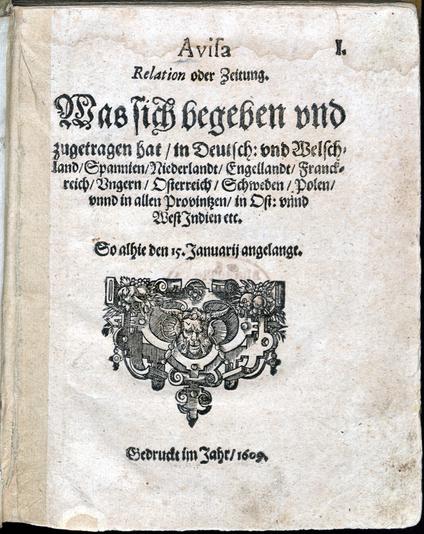 Aviſa
I.
Relation oder Zeitung.
Was ſich begeben vnd
zugetragen hat / in Deutſch: vnd Welſch-
land / Spannien / Niederlandt / Engellandt / Franck-
reich / Vngern / Oſterreich / Schweden / Polen /
vnnd in allen Provintzen / in Oſt: vnnd
Weſt Indien etc.
So alhie den 15. Januarij angelangt.
Gedruckt im Jahr / 1609.